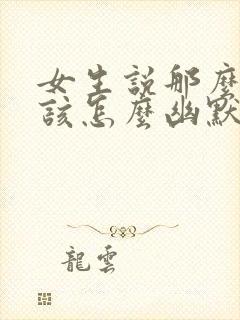 女生說那麼
該怎麼幽默
龍雲